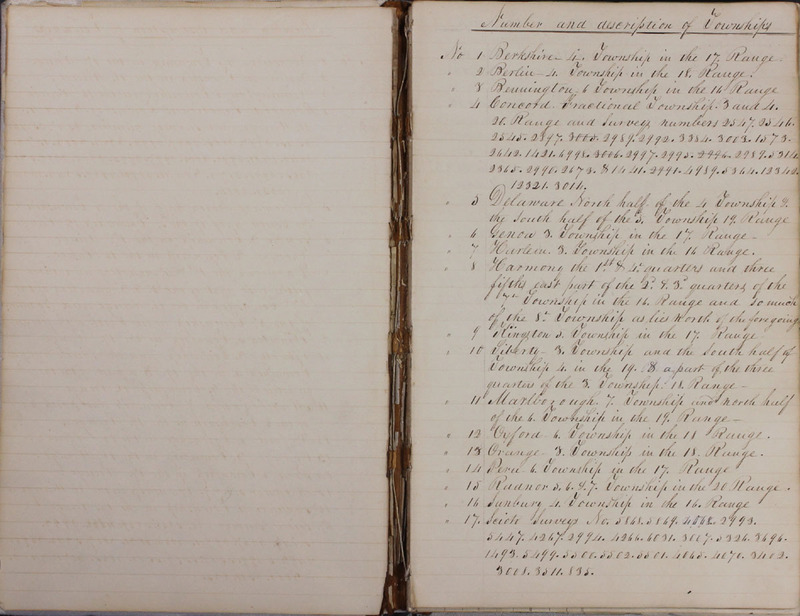 Number and description of Townships
No 1 Berkshire - 4. Township in the 17. Range.
" 2 Berlin - 4. Township in the 18. Range.
" 3 Bennington 6 Township in the 16 Range
" 4 Concord. Fractional Township. 3 and 4.
20. Range and Surveys numbers 2547. 2546.
2545. 2897. 3005. 2989. 2992. 3384. 3003. 1573.
2642. 1421. 6998. 3006. 2997. 2995. 2996. 2989. 5314.
2365. 2990. 2673. & 1441. 2991. 4989. 5364. 12342.
12321. 3016.
" 5 Delaware North half of the 4 Township &
the South half of the 5. Township 19. Range
" 6 Genoa 3. Township in the 17. Range -
" 7 Harlem. 3. Township in the 16 Range.
" 8 Harmony the 1st & 4th quarters and three
fifths east part of the 2d. & 3d. quarters of the
7th Township in the 16. Range and so much
of the 8th Township as lies North of the foregoing
" 9 Kingston 5. Township in the 17. Range
" 10 Liberty - 3. Township and the South half of
Township 4. in the 19. & a part of the three
quarters of the 3. Township. 18. Range -
" 11 Marlborough. 7. Township and north half
of the 6. Township in the 19. Range -
" 12 Oxford - 6. Township in the 18 Range.
" 13 Orange - 3. Township in the 18. Range.
" 14 Peru 6. Township in the 17. Range
" 15 Radnor 5. 6. & 7. Township in the 20 Range.
" 16 Sunbury 4. Township in the 16. Range
" 17. Scioto Surveys No. 5868. 5169. 4068. 2993.
5447. 4267. 2994. 4266. 6031. 3007. 5326. 3696.
1493. 5499. 5500. 5502. 5501. 4065. 4070. 3402.
3008. 3511. 835.